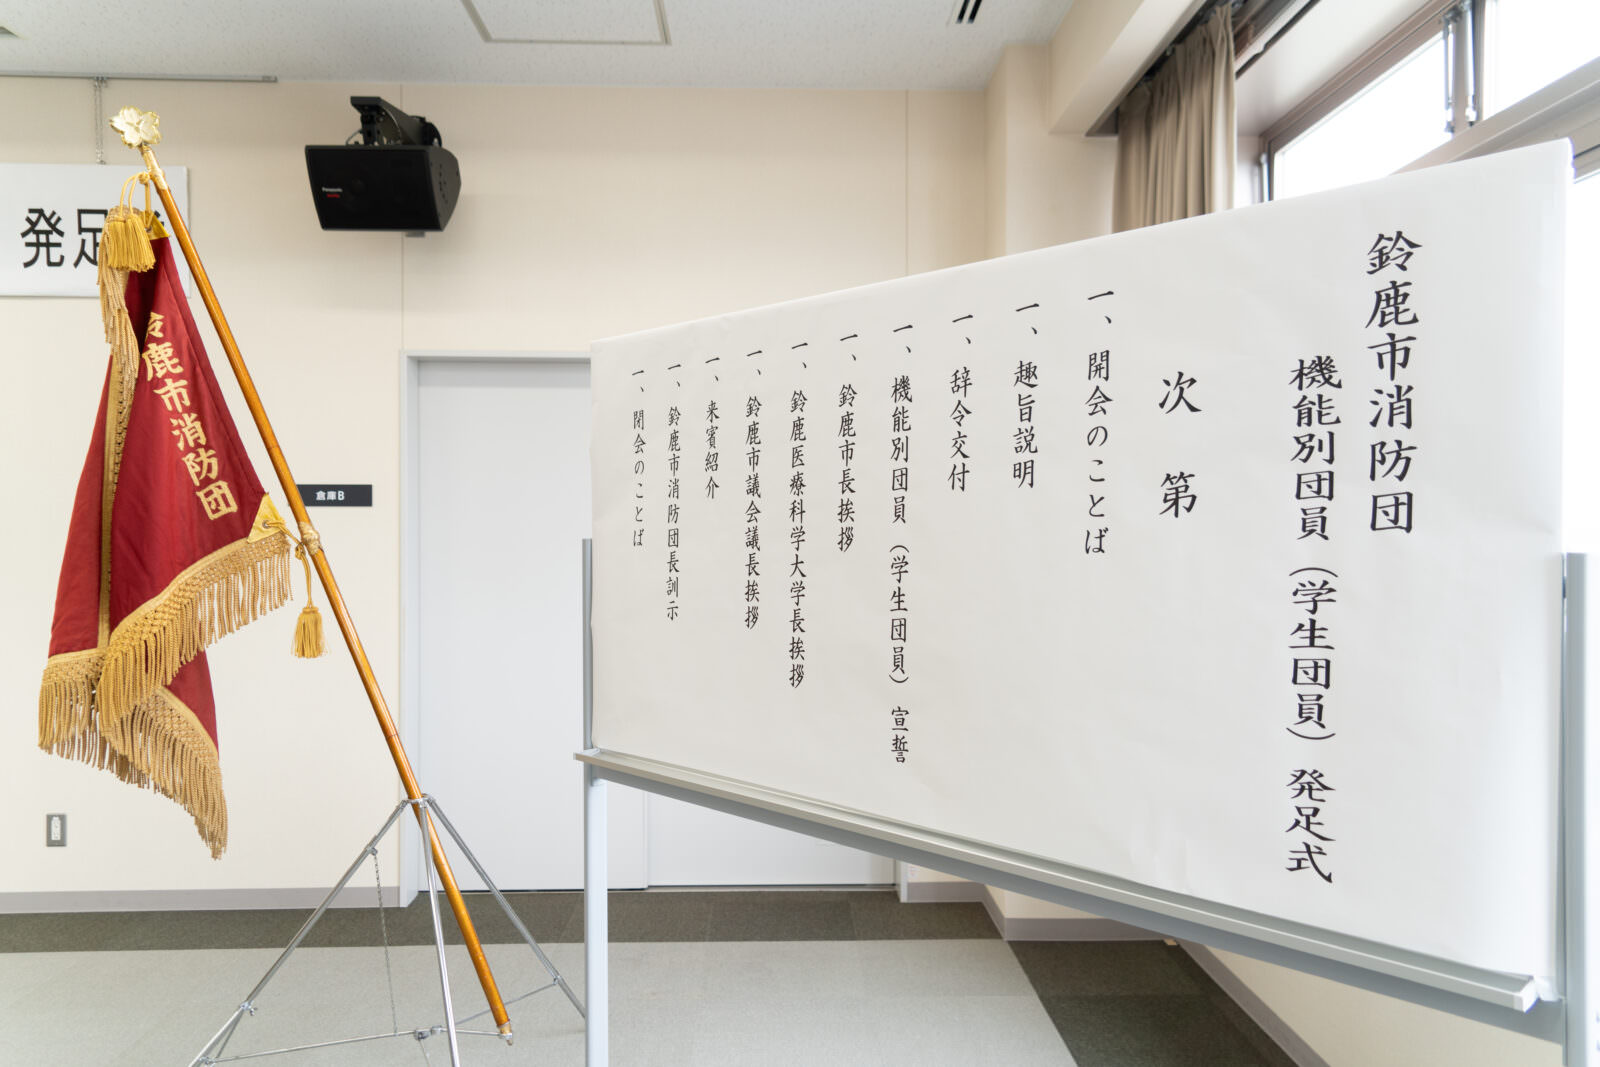 鈴鹿市消防団
機能別団員（学生団員）発足式
次第
一、開会のことば
一、趣旨説明
一、辞令交付
一、機能別団員（学生団員）宣誓
一、鈴鹿市長挨拶
一、鈴鹿医療科学大学長挨拶
一、鈴鹿市議会議長挨拶
一、来賓紹介
一、鈴鹿市消防団長訓示
一、閉会のことば
発足
鈴鹿市消防団
倉庫B
Panasonic